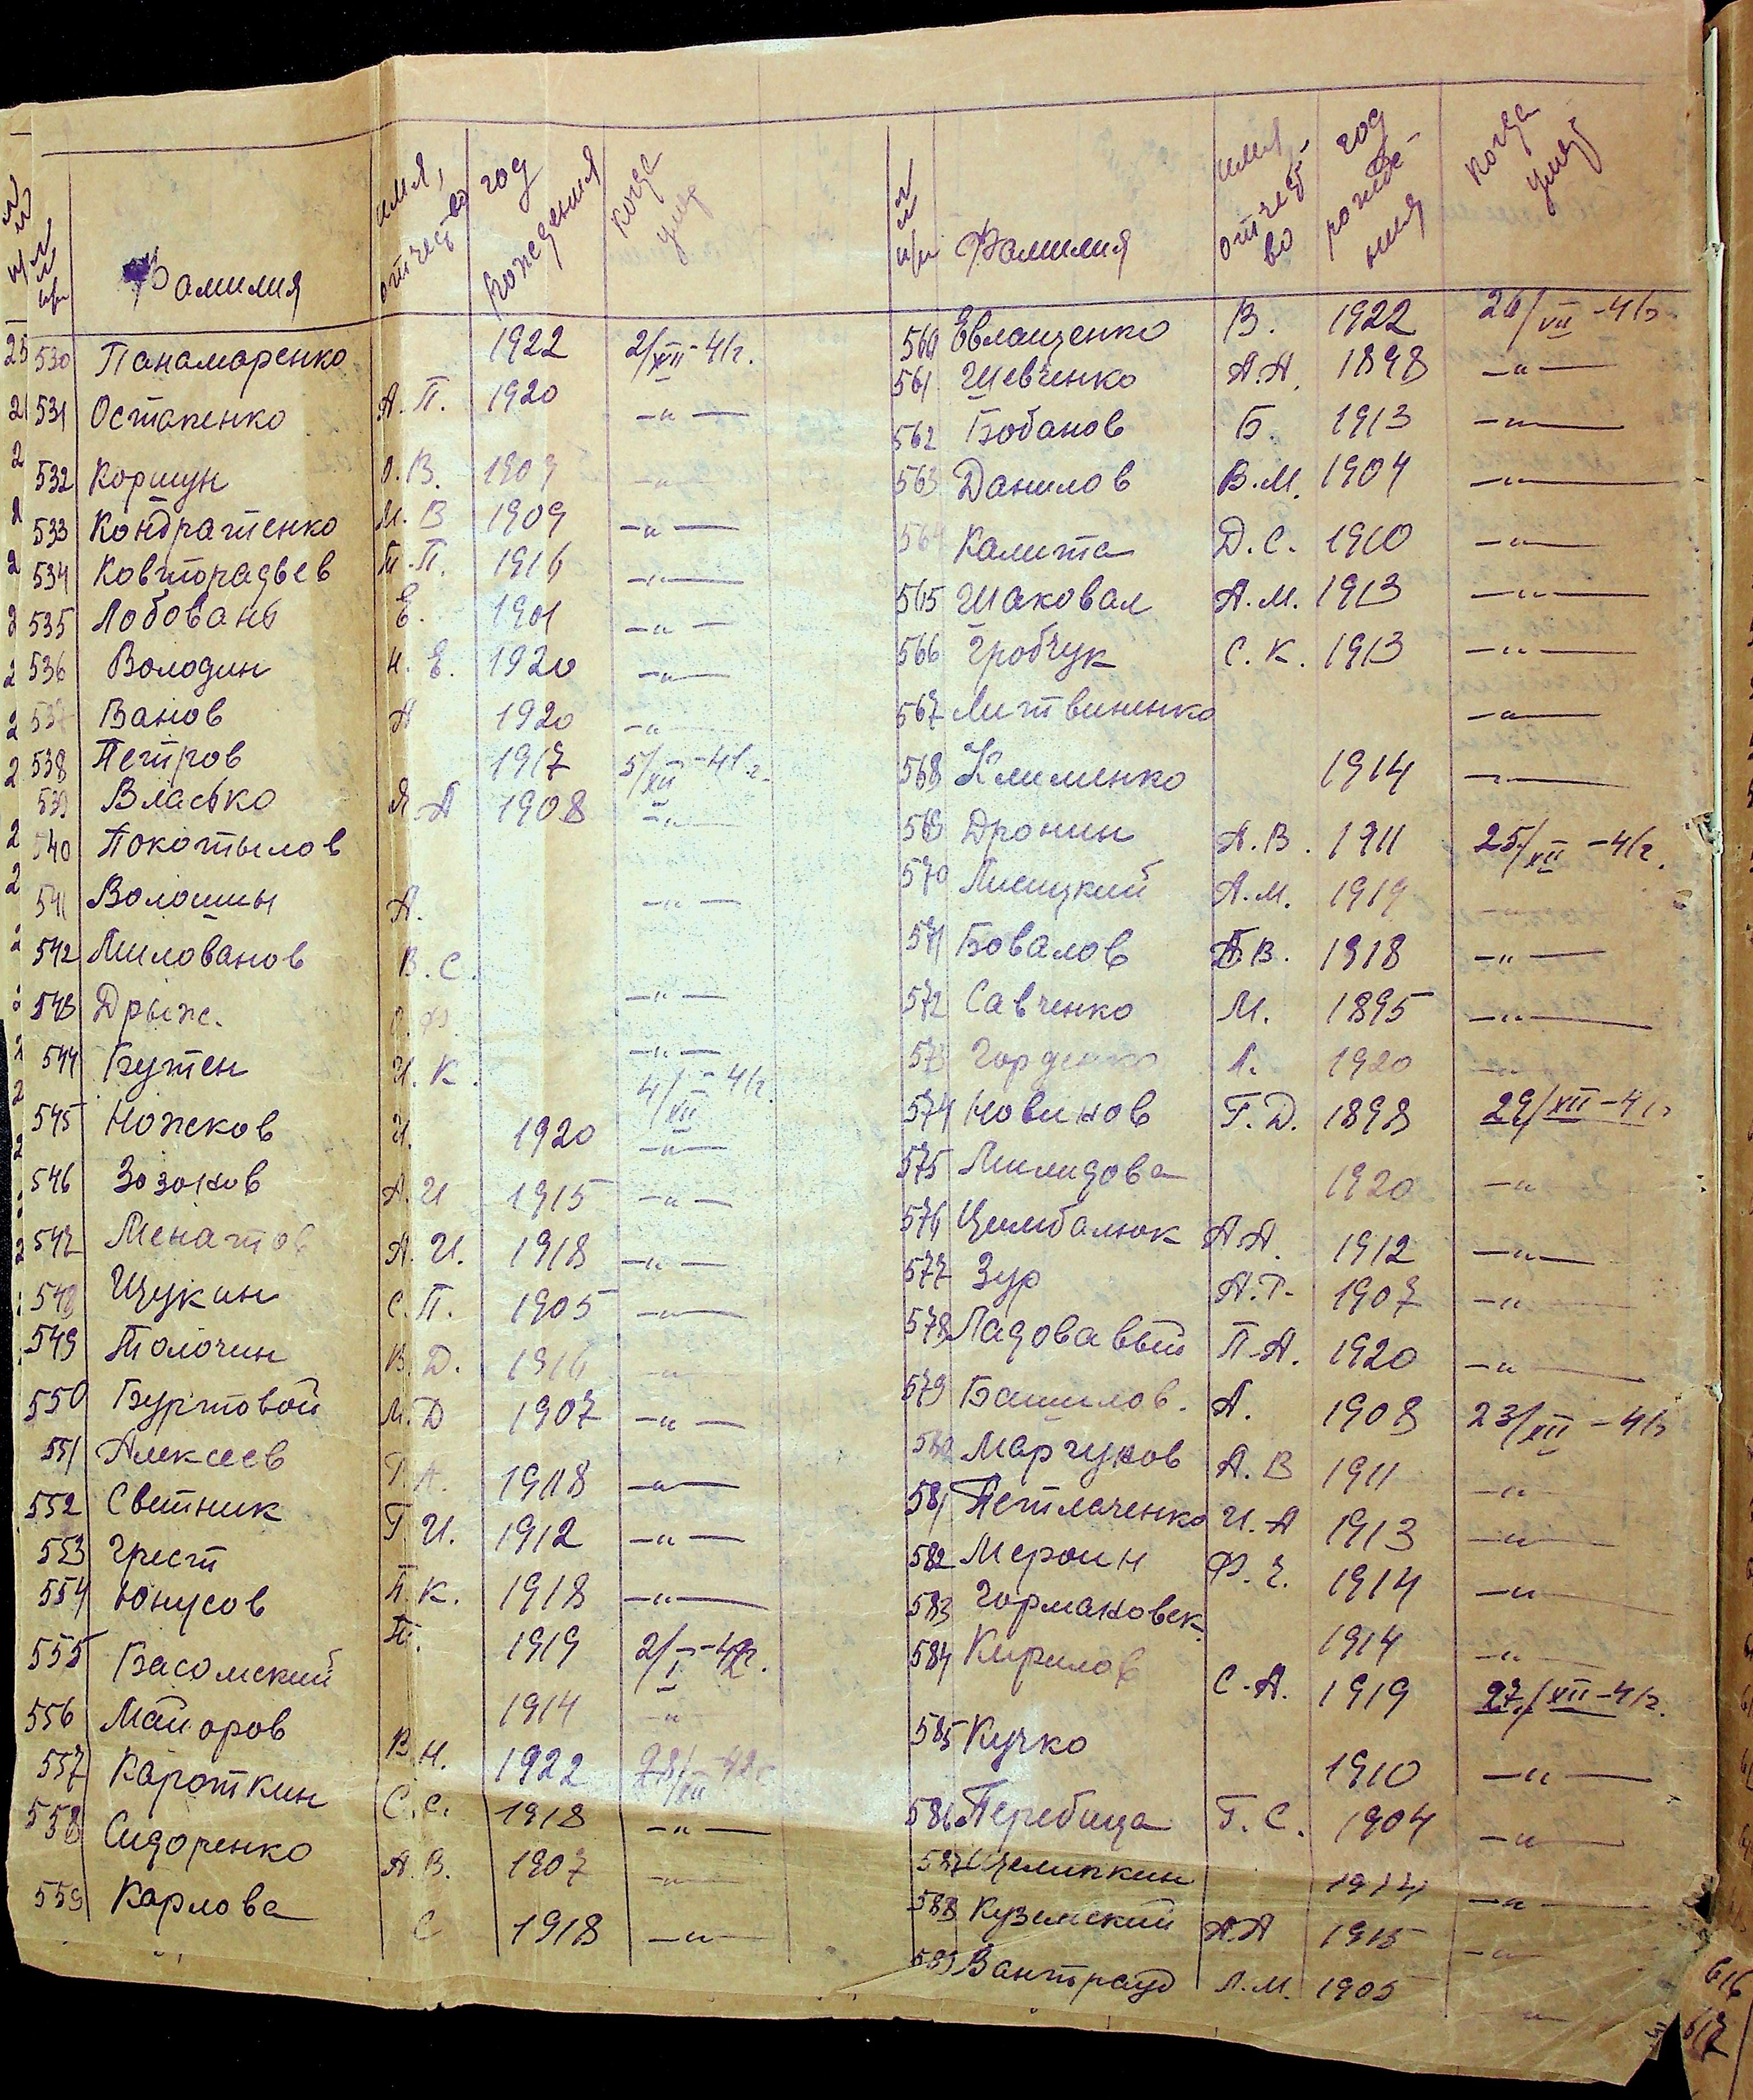 №№ п/п Фамилия имя, отчество год рождения когда умер
530 Панамаренко 1922 2/XII-41г.
531 Остапенко А.П. 1920 —"—
532 Коршун В. —"—
533 Кондратенко М.В 1909 —"—
534 Ковторадьев Т.П. 1916 —"—
535 Лобовань Е. 1901 —"—
536 Володин И.Е. 1920 —"—
537 Ванов А 1920 —"—
538 Петров 1917 5/XII-41г.
539 Власько Я.А 1908 —"—
540 Покотылов
541 Волошин А. —"—
542 Милованов В.С.
543 Дрыж. —"—
544 Бутен И.К. —"—
4/XII-41г.
545 Ножков И. 1920 —"—
546 Зозонов А.И 1915 —"—
547 Менатов А.И. 1918 —"—
548 Щукин С.П. 1905 —"—
549 Толочин В.Д. 1916 —"—
550 Буртовой М.Д 1907 —"—
551 Алексеев 1918 —"—
552 Светник Г.И. 1912 —"—
553 Грест П.К. 1918 —"—
554 Юнусов П. 1919 2/I-42г.
555 Басомский 1914 —"—
556 Майоров В.Н. 1922
557 Кароткин С.С. 1918 —"—
558 Сидоренко А.В. 1907 —"—
559 Карлова С 1918 —"—
№№ п/п Фамилия имя, отчество год рождения когда умер
560 Евлащенко В. 1922
561 Шевченко А.А. 1898 —"—
562 Бобанов Б. 1913 —"—
563 Данилов В.М. 1904 —"—
564 Калита Д.С. 1910 —"—
565 Шаковал А.М. 1913 —"—
566 Гробчук С.К. 1913 —"—
567 Литвиненко —"—
568 Клименко 1914 —"—
569 Дронин А.В. 1911 25/XII-41г.
570 Лисицкий А.М. 1919 —"—
571 Бовалов В. 1918 —"—
572 Савченко М. 1895 —"—
573 Горденко А. 1920 —"—
574 Новиков Г.Д. 1898 29/XII-41г
575 Милидова 1920 —"—
576 Цимбалюк А.А. 1912 —"—
577 Зур А.Г. 1907 —"—
578 Ладовавый П.А. 1920 —"—
579 Башилов. А. 1908 23/XII-41г
580 Марчуков А.В 1911 —"—
581 Петлаченко И.А 1913 —"—
582 Мероин Ф.Е. 1914 —"—
583 Гормаковск. 1914 —"—
584 Кирилов С.А. 1919 27/XII-41г.
585 Кучко 1910 —"—
586 Перебица Г.С. 1904 —"—
587 Щелипкин 1914 —"—
588 Куземский А.А 1915 —"—
589 Вантрауд Л.М. 1905 —"—
616
617